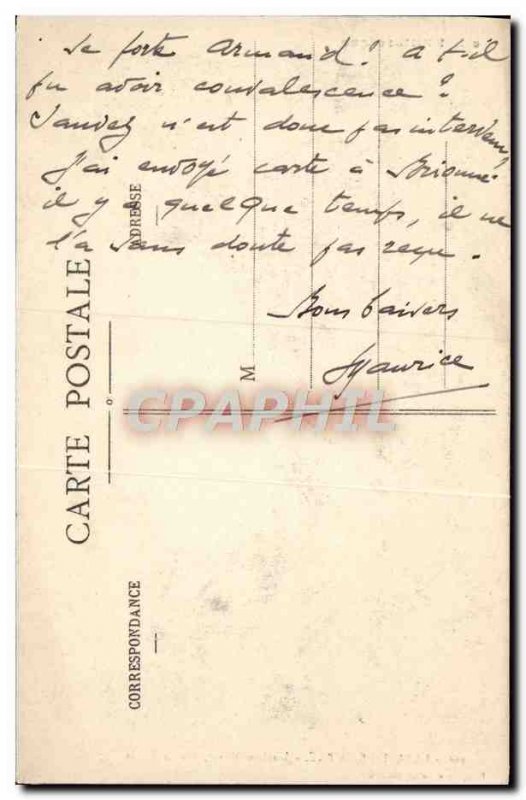 se porte Armand? a t-il
pu avoir convalescence?
n'est donc pas intervenu?
J'ai envoyé carte à
il y a quelque temps, il ne
l'a sans doute pas reçu.
Bons baisers
Maurice
CARTE POSTALE
ADRESSE
M
CORRESPONDANCE
CPAPHIL